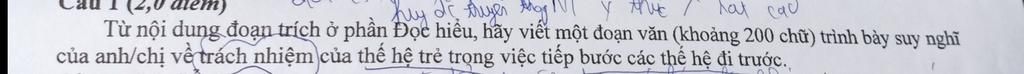 Câu 1 (2,0 điểm)
huy đc truyền thống VN ý thức
Từ nội dung đoạn trích ở phần Đọc hiểu, hãy viết một đoạn văn (khoảng 200 chữ) trình bày suy nghĩ
của anh/chị về trách nhiệm của thế hệ trẻ trong việc tiếp bước các thế hệ đi trước.